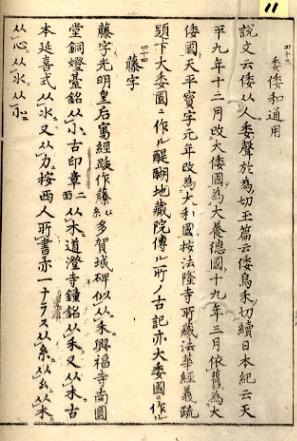 11
四十三
委倭和通用
説文云倭从人委聲於為切玉篇云倭烏禾切續日本紀云天
平九年十二月改大倭國為大養德國十九年三月依舊為大
倭國天平寶字元年改為大和國按法隆寺所藏法華經義疏
題下大委國ニ作ル醍醐地藏院傳ル所ノ古記亦大委國ニ作ル
四十四
藤字
藤字光明皇后篤經跋作藤糸ニ从多賀城碑似从禾興福寺南圓
堂銅燈臺銘从小古印章二面从木道澄寺鐘銘从禾又从木古
本延喜式从氷又从力按西人所書亦一ナラス从糸从幺从米
从心从水从小